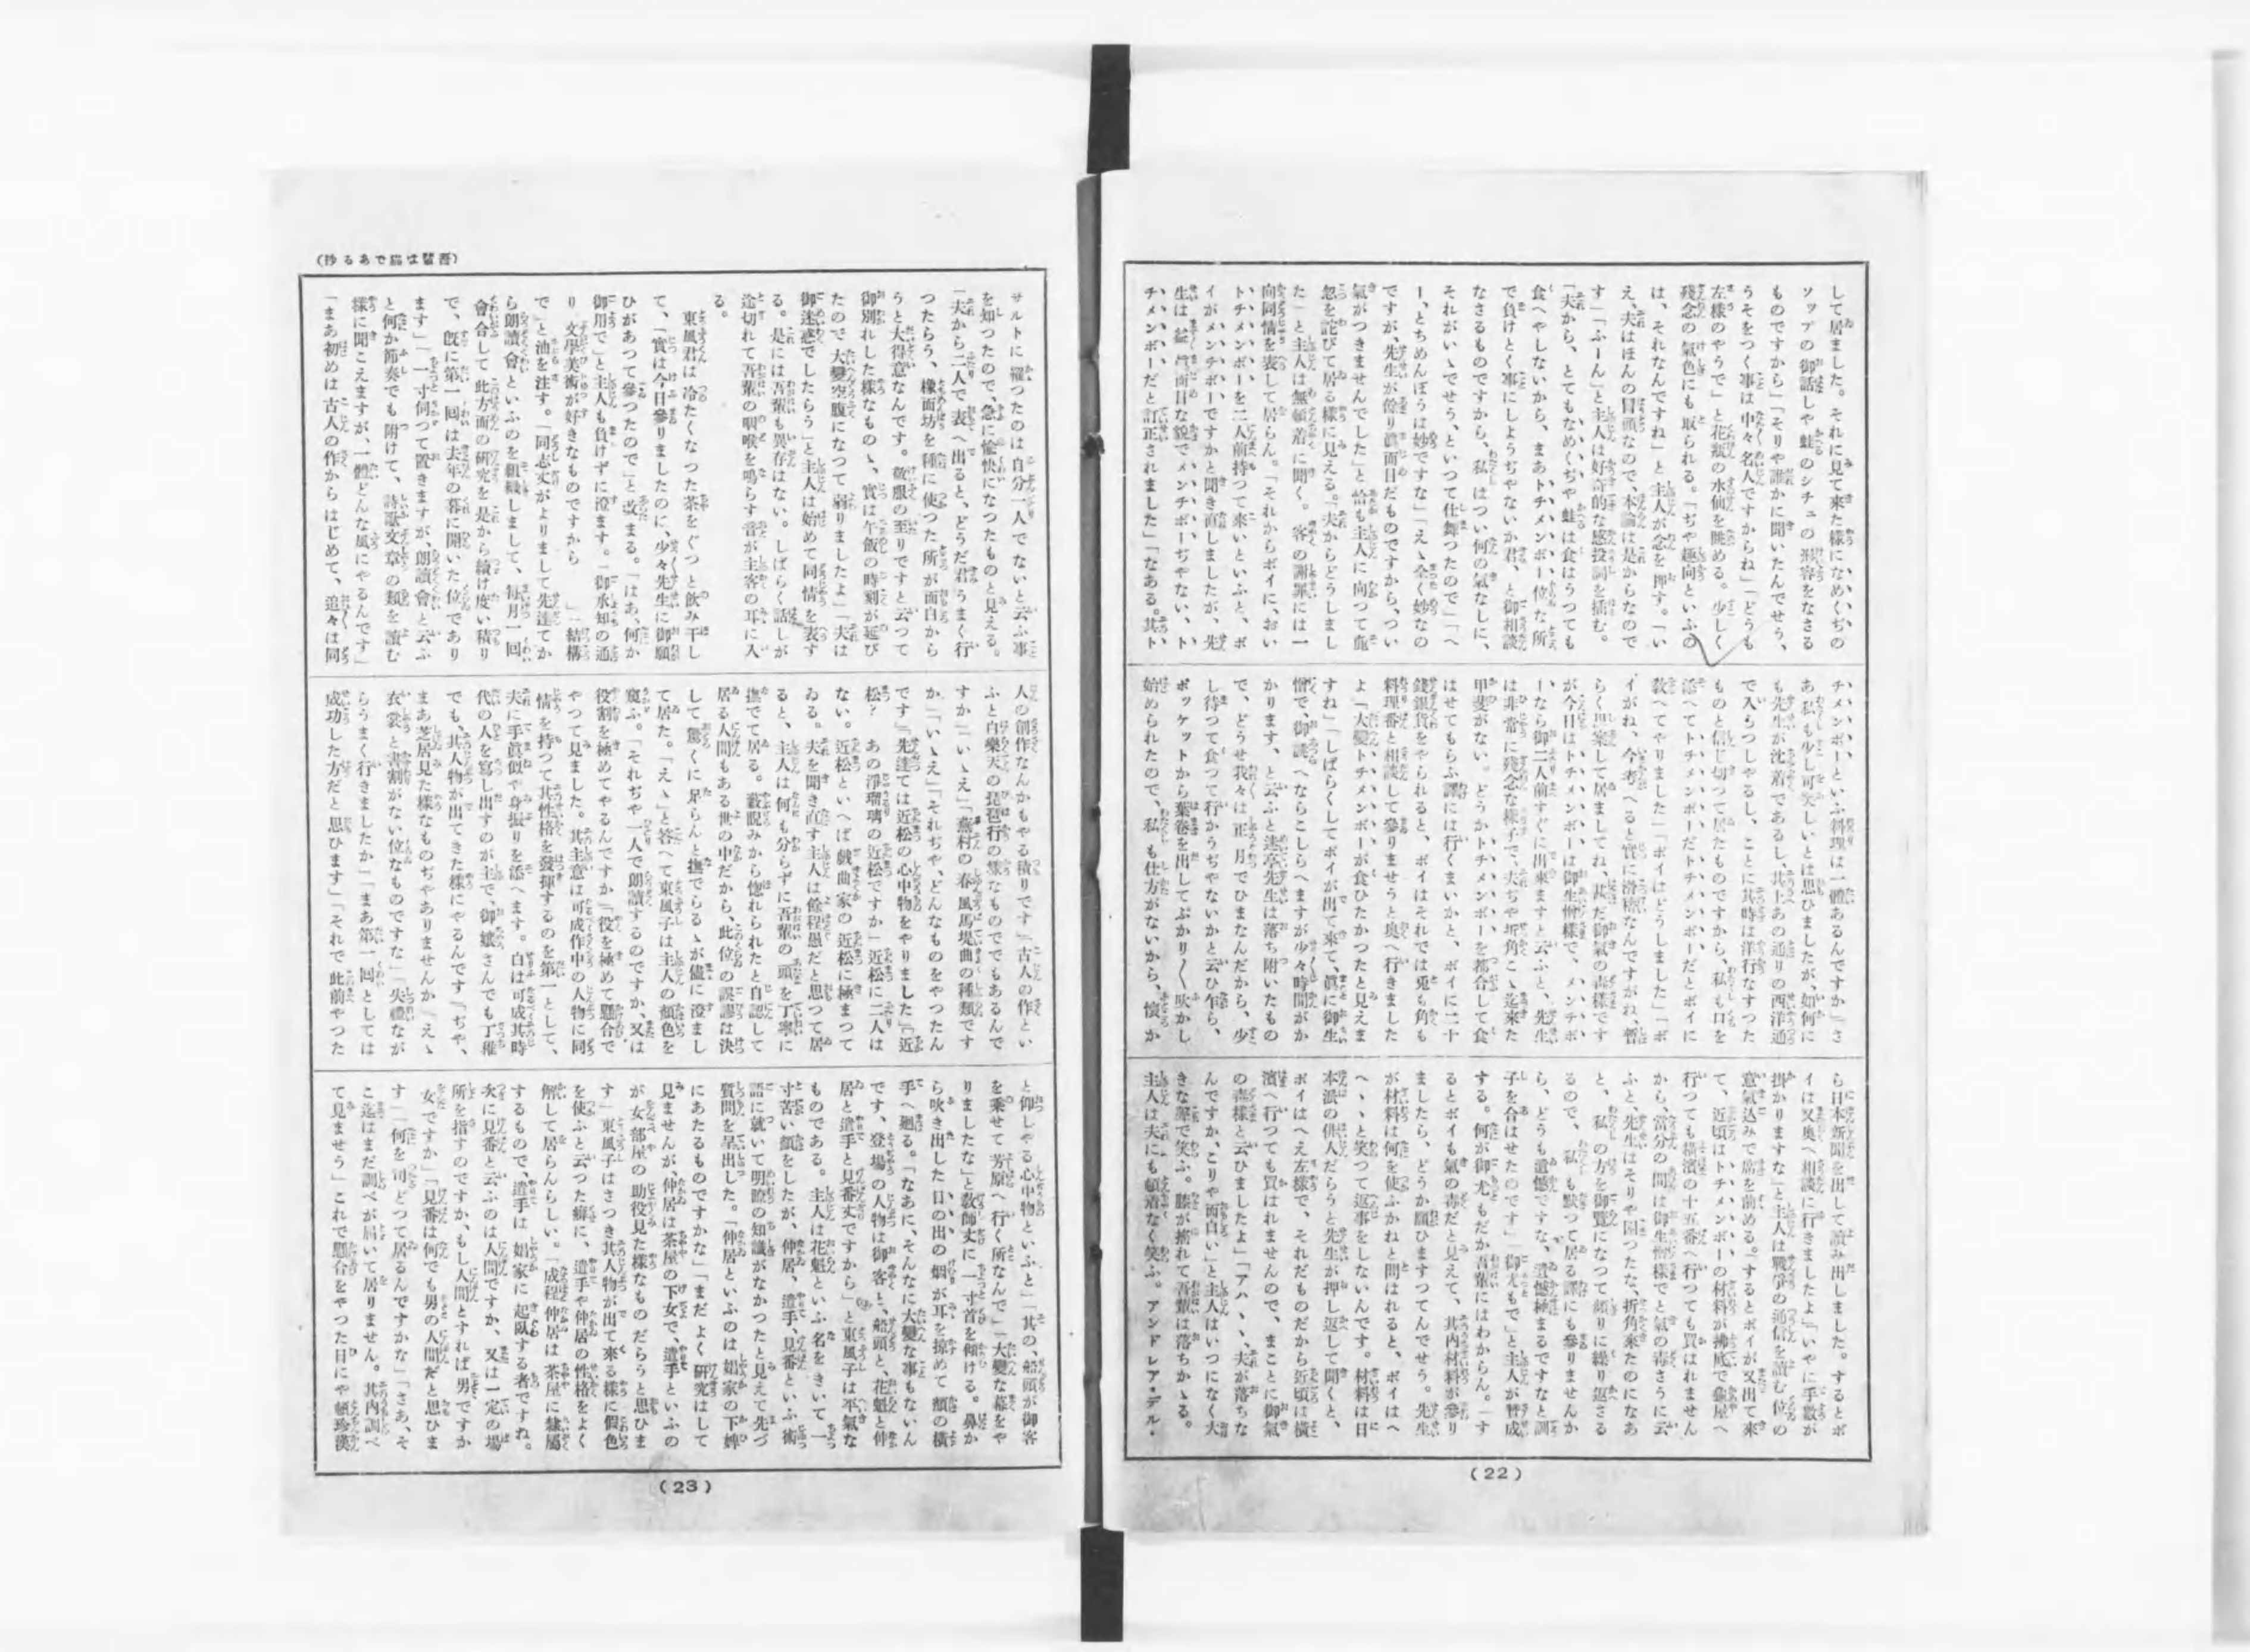 して居ました。それに見て來た樣になめくぢの
ソツプの御話しや蛙のシチユの形容をなさる
ものですから」「そりや誰かに聞いたんでせう、
うそをつく事は中々名人ですからね」「どうも
左樣のやうで」と花瓶の水仙を眺める。少しく
殘念の氣色にも取られる。「ぢや趣向といふの
は、それなんですね」と主人が念を押す。「い
え、夫はほんの冒頭なので、本論は是からなので
す」「ふーん」と主人は好奇的な感投詞を挿む。
「夫から、とてもなめくぢや蛙は食はうつても
食へやしないから、まあトチメンボー位な所
で負けとく事にしようぢやないか君、と御相談
なさるものですから、私はつい何の氣なしに、
それがいゝでせう、といつて仕舞つたので」「へ
ー、とちめんぼうは妙ですな」「えゝ全く妙なの
ですが、先生が餘り眞面目だものですから、つい
氣がつきませんでした」と恰も主人に向つて麁
忽を詫びて居る樣に見える。「夫からどうしまし
た」と主人は無頓着に聞く。客の謝罪には一
向同情を表して居らん。「それからボイに、おい
トチメンボーを二人前持つて來いといふと、ボ
イがメンチボーですかと聞き直しましたが、先
生は益眞面目な貌でメンチボーぢやない、ト
チメンボーだと訂正されました」「なある。其ト
チメンボーといふ料理は一體あるんですか」「さ
あ私も少し可笑しいとは思ひましたが、如何に
も先生が沈着であるし、其上あの通りの西洋通
で入らつしやるし、ことに其時は洋行なすつた
ものと信じ切つて居たものですから、私も口を
添へてトチメンボーだトチメンボーだとボイに
敎へてやりました」「ボイはどうしました」「ボ
イがね、今考へると實に滑稽なんですがね、暫
らく思案して居ましてね、甚だ御氣の毒樣です
が今日はトチメンボーは御生憎樣で、メンチボ
ーなら御二人前すぐに出來ますと云ふと、先生
は非常に殘念な樣子で、夫ぢや折角こゝ迄來た
甲斐がない。どうかトチメンボーを都合して食
はせてもらふ譯には行くまいかと、ボイに二十
錢銀貨をやられると、ボイはそれでは兎も角も
料理番と相談して參りませうと奧へ行きました
よ」「大變トチメンボーが食ひたかつたと見えま
すね」「しばらくしてボイが出て來て、眞に御生
憎で、御誂へならこしらへますが少々時間がか
かります、と云ふと迷亭先生は落ち附いたもの
で、どうせ我々は正月でひまなんだから、少
し待つて食つて行かうぢやないかと云ひ乍ら、
ポツケツトから葉卷を出してぷかり〳〵吹かし
始められたので、私も仕方がないから、懷か
ら日本新聞を出して讀み出しました。するとボ
イは又奧へ相談に行きましたよ」「いやに手數が
掛かりますな」と主人は戰爭の通信を讀む位の
意氣込みで席を前める。「するとボイが又出て來
て、近頃はトチメンボーの材料が拂底で龜屋へ
行つても橫濱の十五番へ行つても買はれません
から、當分の間は御生憎樣でと氣の毒さうに云
ふと、先生はそりや困つたな、折角來たのになあ
と、私の方を御覽になつて頻りに繰り返さる
るので、私も默つて居る譯にも參りませんか
ら、どうも遺憾ですな、遺憾極まるですなと調
子を合はせたのです」「御尤もで」と主人が贊成
する。何が御尤もだか吾輩にはわからん。「す
るとボイも氣の毒だと見えて、其內材料が參り
ましたら、どうか願ひますつてんでせう。先生
が材料は何を使ふかねと問はれると、ボイはへ
へゝゝと笑つて返事をしないんです。材料は日
本派の俳人だらうと先生が押し返して聞くと、
ボイはへえ左樣で、それだものだから近頃は橫
濱へ行つても買はれませんので、まことに御氣
の毒樣と云ひましたよ」「アハヽヽ、夫が落ちな
んですか、こりや面白い」と主人はいつになく大
きな聲で笑ふ。膝が搖れて吾輩は落ちかゝる。
主人は夫にも頓着なく笑ふ。アンドレア・デル・
(22)
(吾輩は猫である抄)
サルトに罹つたのは自分一人でないと云ふ事
を知つたので、急に愉快になつたものと見える。
「夫から二人で表へ出ると、どうだ君うまく行
つたらう、橡面坊を種に使つた所が面白から
うと大得意なんです。敬服の至りですと云つて
御別れした樣なものゝ、實は午飯の時刻が延び
たので大變空腹になつて弱りましたよ」「夫は
御迷惑でしたらう」と主人は始めて同情を表す
る。是には吾輩も異存はない。しばらく話しが
途切れて吾輩の咽喉を鳴らす音が主客の耳に入
る。
東風君は冷たくなつた茶をぐつと飮み干し
て、「實は今日參りましたのに、少々先生に御願
ひがあつて參つたので」と改まる。「はあ、何か
御用で」と主人も負けずに澄ます。「御承知の通
り文學美術が好きなものですから　」「結構
で」と油を注す。「同志丈がよりまして先達てか
ら朗讀會といふのを組織しまして、每月一回
會合して此方面の硏究を是から續け度い積り
で、旣に第一回は去年の暮に開いた位であり
ます」「一寸伺つて置きますが、朗讀會と云ふ
と何か節奏でも附けて、詩歌文章の類を讀む
樣に聞こえますが、一體どんな風にやるんです」
「まあ初めは古人の作からはじめて、追々は同
人の創作なんかもやる積りです」「古人の作とい
ふと白樂天の琵琶行の樣なものででもあるんで
すか」「いゝえ」「蕪村の春風馬堤曲の種類です
か」「いゝえ」「それぢや、どんなものをやつたん
です」「先達ては近松の心中物をやりました」「近
松？　あの淨瑠璃の近松ですか」近松に二人は
ない。近松といへば戲曲家の近松に極まつて
ゐる。夫を聞き直す主人は餘程愚だと思つて居
ると、主人は何も分らずに吾輩の頭を丁寧に
撫でて居る。藪睨みから惚れられたと自認して
居る人間もある世の中だから、此位の誤謬は決
して驚くに足らんと撫でらるゝが儘に澄まし
て居た。「えゝ」と答へて東風子は主人の顏色を
窺ふ。「それぢや一人で朗讀するのですか、又は
役割を極めてやるんですか」「役を極めて懸合で
やつて見ました。其主意は可成作中の人物に同
情を持つて其性格を發揮するのを第一として、
夫に手眞似や身振りを添へます。白は可成其時
代の人を寫し出すのが主で、御孃さんでも丁稚
でも、其人物が出てきた樣にやるんです」「ぢや、
まあ芝居見た樣なものぢやありませんか」「えゝ
衣裳と書割がない位なものですな」「失禮なが
らうまく行きましたか」「まあ第一回としては
成功した方だと思ひます」「それで此前やつた
と仰しやる心中物といふと」「其の、船頭が御客
を乘せて芳原へ行く所なんで」「大變な幕をや
りましたな」と敎師丈に一寸首を傾ける。鼻か
ら吹き出した日の出の烟が耳を掠めて顏の橫
手へ廻る。「なあに、そんなに大變な事もないん
です、登場の人物は御客と、船頭と、花魁と仲
居と遣手と見番丈ですから」と東風子は平氣な
ものである。主人は花魁といふ名をきいて一
寸苦い顏をしたが、仲居、遣手、見番といふ術
語に就いて明瞭の知識がなかつたと見えて先づ
質問を呈出した。「仲居といふのは娼家の下婢
にあたるものですかな」「まだよく硏究はして
見ませんが、仲居は茶屋の下女で、遣手といふの
が女部屋の助役見た樣なものだらうと思ひま
す」東風子はさつき其人物が出て來る樣に假色
を使ふと云つた癖に、遣手や仲居の性格をよく
解して居らんらしい。「成程仲居は茶屋に隸屬
するもので、遣手は娼家に起臥する者ですね。
次に見番と云ふのは人間ですか、又は一定の場
所を指すのですか、もし人間とすれば男ですか
女ですか」「見番は何でも男の人間だと思ひま
す」「何を司どつて居るんですかな」「さあ、そ
こ迄はまだ調べが屆いて居りません。其內調べ
て見ませう」これで懸合をやつた日にや頓珍漢
(23)